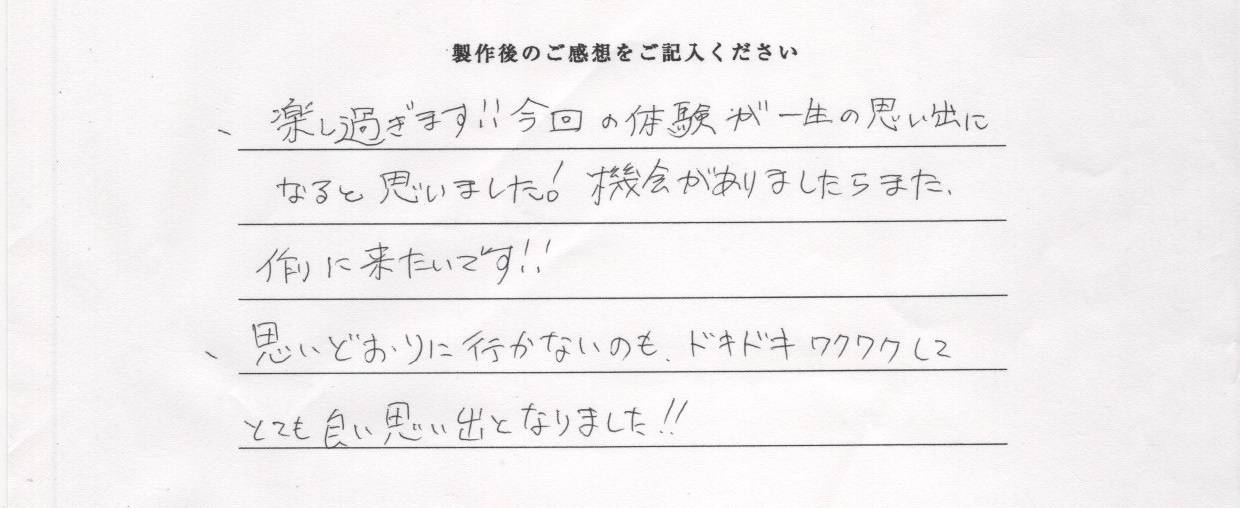 製作後のご感想をご記入ください
、楽し過ぎます!!今回の体験が一生の思い出に
なると思いました!機会がありましたらまた、
作りに来たいです!!
、思いどおりに行かないのも、ドキドキワクワクして
とても良い思い出となりました!!